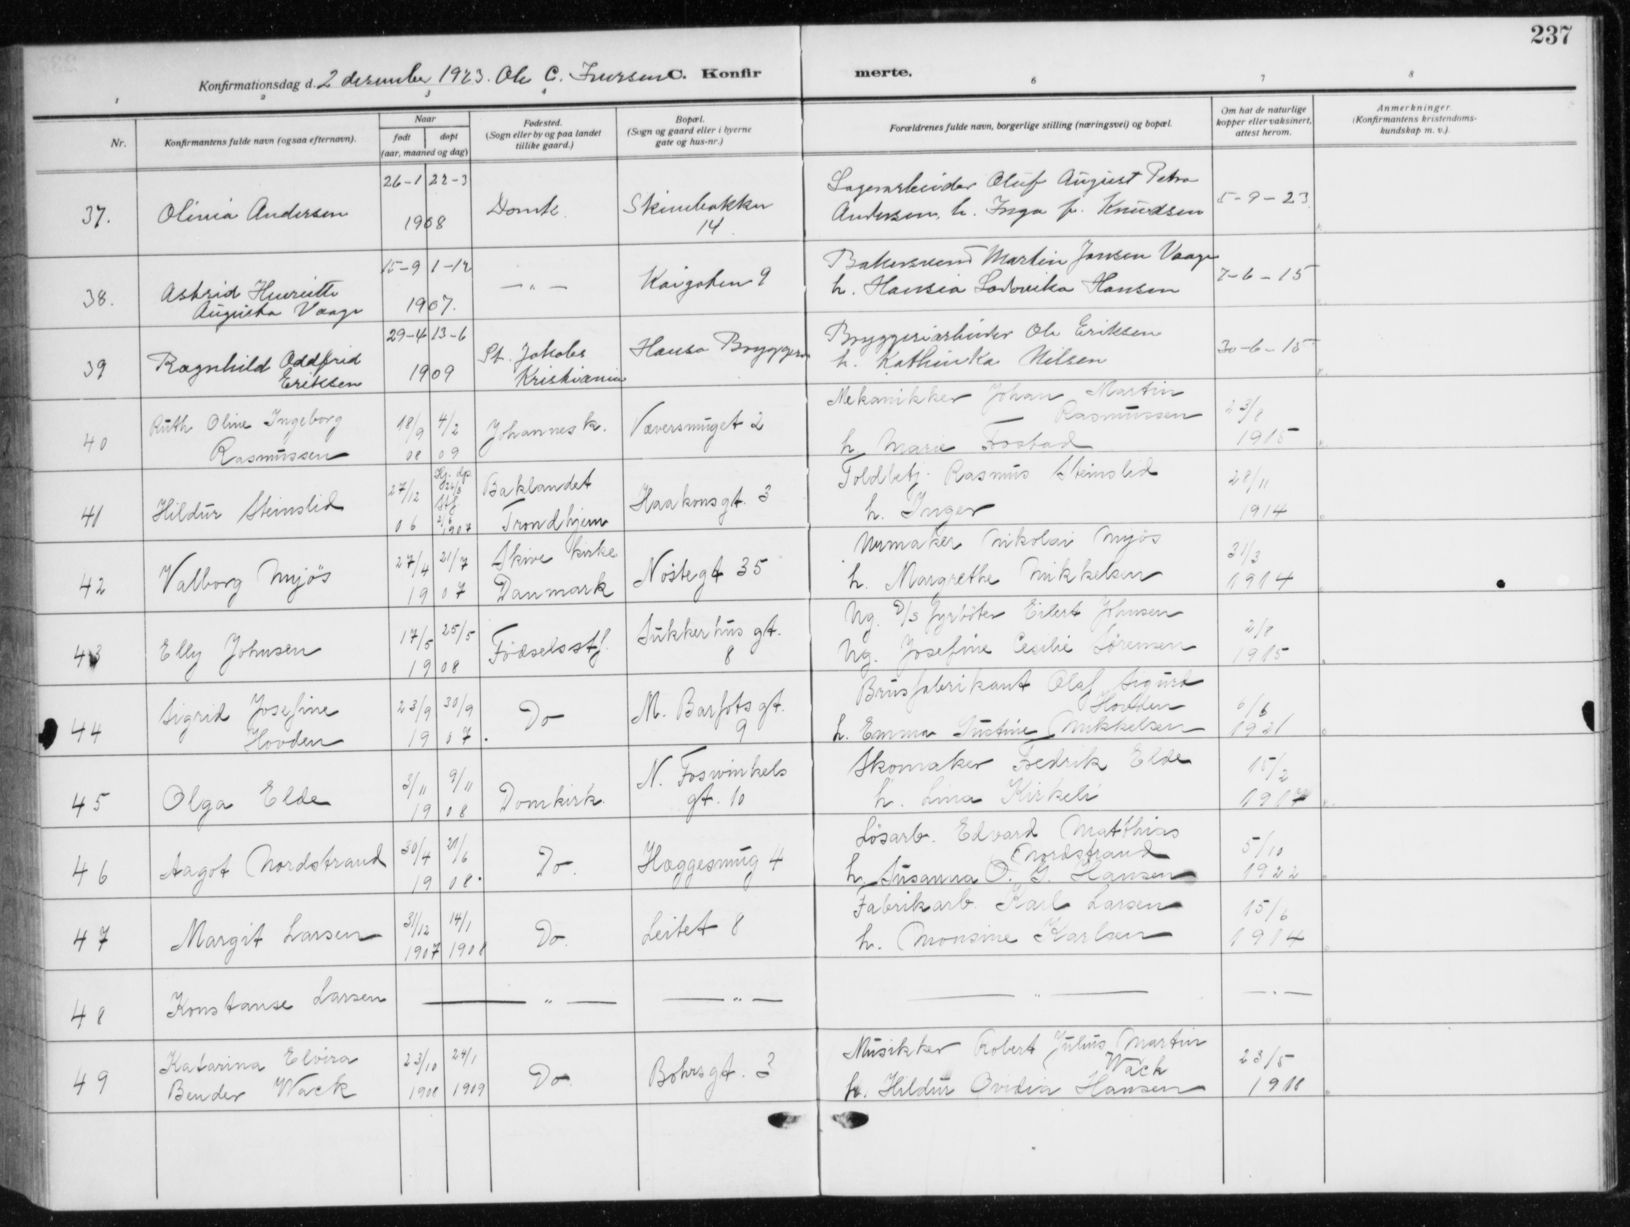 237
Konfirmationsdag d. 2 desember 1923. Ole C. Iversen C. Konfir merte.
1 2 3 4 6 7 8
Nr. Konfirmantens fulde navn (ogsaa efternavn). Naar født døpt (aar, maaned og dag) Fødested. (Sogn eller by og paa landet tillike gaard.) Bopæl. (Sogn og gaard eller i byerne gate og hus-nr.) Forældrenes fulde navn, borgerlige stilling (næringsvei) og bopæl. Om hat de naturlige kopper eller vaksinert, attest herom. Anmerkninger. (Konfirmantens kristendoms-kundskap m. v.).
26-1 22-3 Lagerarbeider Oluf August Petra
37. Olinia Andersen 1908 Domk. Skivebakken 14. Andersen, h. Inga f. Knudsen 5-9-23
15-9 1-12 Bakersvend Martin Jansen Vaage
38. Astrid Henriette Augusta Vaage 1907. — " — Kaigaten 9 h. Hansia Lodovika Hansen 7-6-15
29-4 13-6 Bryggeriarbeider Ole Eriksen
39 Ragnhild Oddfrid Eriksen 1909 St. Jakobs Kristiania Hansa Bryggeri h. Kathinka Nilsen 30-6-15
Ruth Oline Ingeborg 18/9 4/2 Mekanikker Johan Martin Rasmussen 23/8
40 Rasmussen 08 09 Johannes k. Væversmuget 2 h. Marie Frostad 1915
27/12 Hj. dp. Baklandet Toldbetj. Rasmus Steinslid 28/11
41 Hildur Steinslid 06 1907 Trondhjem Haakonsgt. 3 h. Inger 1914
27/4 21/7 Skive kirke Urmaker Nikolai Myös 31/3
42 Valborg Myös 1907 Danmark Nöstegt 35 h. Margrethe Mikkelsen 1914
17/5 25/5 Ug. D/s fyrböter Eilert Johnsen 2/8
43 Elly Johnsen 1908 Födselsstf. Sukkerhus gt. 8 Ug. Josefine Cecilie Sörensen 1915
Sigrid Josefine 23/9 30/9 Brusfabrikant Olaf Sigurd Hovden 6/6
44 Hovden 1907. Do M. Barfots gt. 9 h. Emma Justine Mikkelsen 1921
3/11 9/11 Skomaker Fredrik Elde 15/2
45 Olga Elde 1908 Domkirk. N. Foswinkels gt. 10 h. Lina Kirkeli 1917
30/4 21/6 Lösarb. Edvard Matthias Nordstrand 5/10
46 Aagot Nordstrand 1908. Do. Hæggesmug 4 h. Susanna O. J. Hansen 1922
31/12 14/1 Fabrikarb. Karl Larsen 15/6
47 Margit Larsen 1907 1908 Do. Leitet 8 h. Monsine Karlsen 1914
48 Konstanse Larsen — " — — " — — " — — " —
Katarina Elvira 23/10 24/1 Musikker Robert Julius Martin Wack 23/5
49 Bender Wack 1908 1909 Do. Böhrsgt. 3 h. Hildur Ovidia Hansen 1911